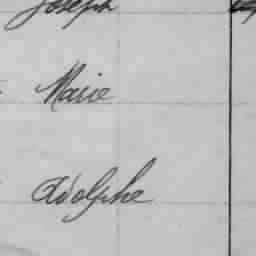 Joseph
Marie
Adolphe